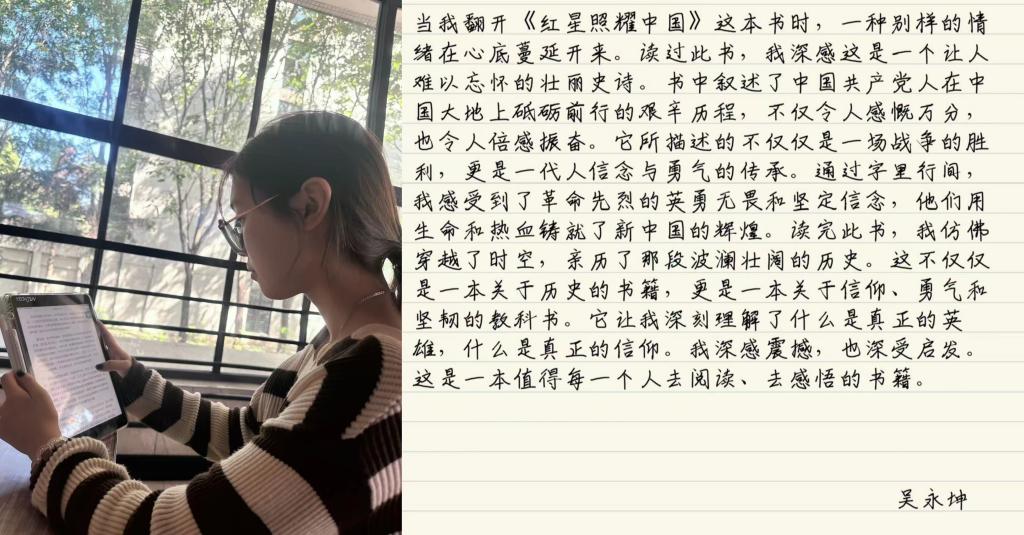 当我翻开《红星照耀中国》这本书时，一种别样的情
绪在心底蔓延开来。读过此书，我深感这是一个让人
难以忘怀的壮丽史诗。书中叙述了中国共产党人在中
国大地上砥砺前行的艰辛历程，不仅令人感慨万分，
也令人倍感振奋。它所描述的不仅仅是一场战争的胜
利，更是一代人信念与勇气的传承。通过字里行间，
我感受到了革命先烈的英勇无畏和坚定信念，他们用
生命和热血铸就了新中国的辉煌。读完此书，我仿佛
穿越了时空，亲历了那段波澜壮阔的历史。这不仅仅
是一本关于历史的书籍，更是一本关于信仰、勇气和
坚韧的教科书。它让我深刻理解了什么是真正的英
雄，什么是真正的信仰。我深感震撼，也深受启发。
这是一本值得每一个人去阅读、去感悟的书籍。
吴永坤